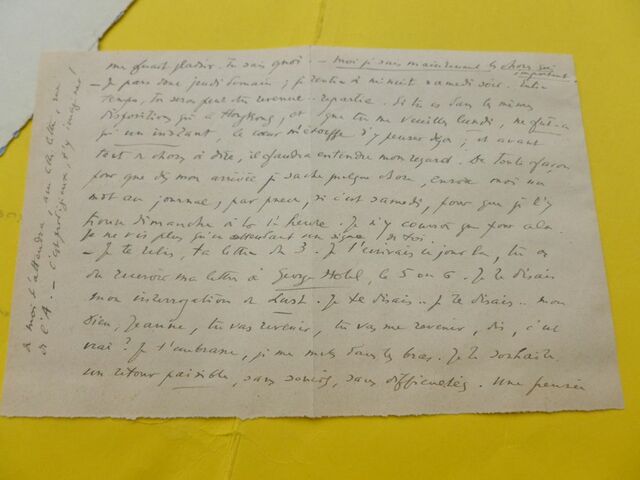 me ferait plaisir. Tu sais quoi — moi je sais maintenant les choses qui
importent.
— Je pars donc jeudi demain ; je rentre à minuit samedi soir. Entre
temps, tu seras peut-être revenue.. repartie. Si tu es dans les mêmes
dispositions qu'à Hongkong, et que tu me veuilles lundi, ne fût-ce
qu'un instant, le cœur m'étouffe d'y penser déjà ; et avant
tout choses à dire, il faudra entendre mon regard. De toute façon
pour que dès mon arrivée je sache quelque chose, envoie moi un
mot au journal, par pneu, si c'est samedi, pour que je l'y
trouve dimanche à 10 h. heure. Je n'y courrai que pour cela.
Je ne vis plus qu'en attendant un signe de toi.
— Je te relis, ta lettre du 3. Je t'écrivais ce jour là, tu as
du recevoir ma lettre à George Hotel, le 5 ou 6. Je te disais
mon interrogation de Last. Je te disais.. Je te disais.. mon
Dieu, Jeanne, tu vas revenir, tu vas me revenir, dis, c'est
vrai? Je t'embrasse, je me mets dans tes bras. Je te souhaite
un retour paisible, sans soucis, sans difficultés. Une pensée
de moi t'attendra, une lettre, rue
de l'A. — c'est prodigieux, t'y imaginer!